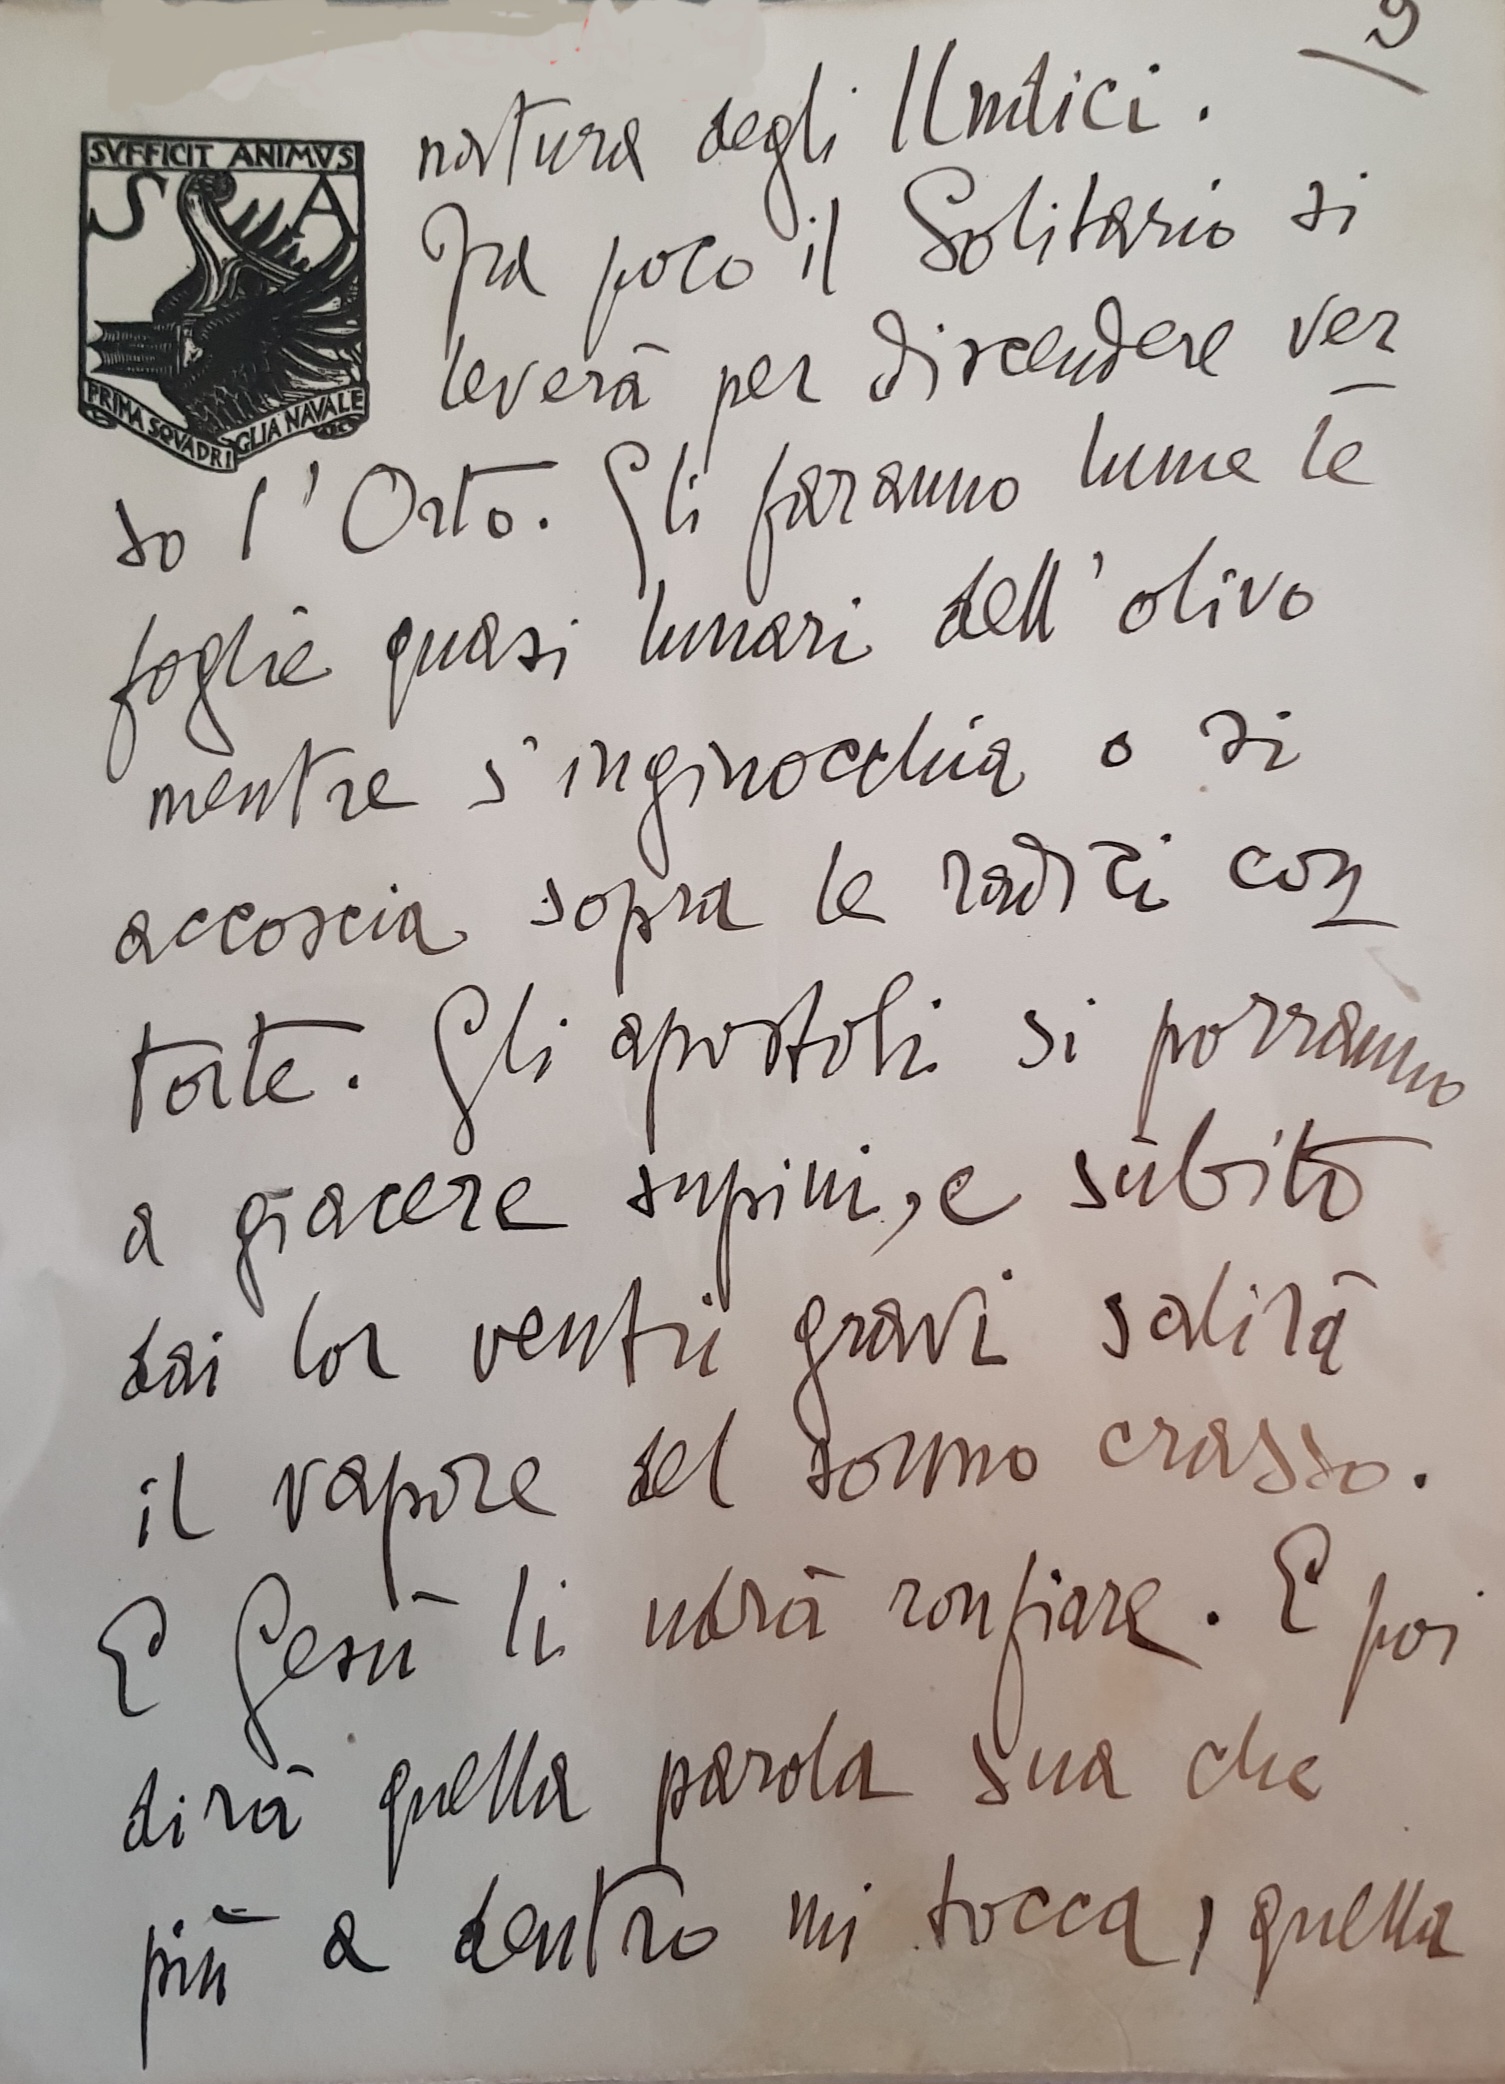 9
SVFFICIT ANIMVS
S A
PRIMA SQVADRIGLIA NAVALE
degli
Fra poco il Solitario si
leverà per discendere ver
so l'Orto. Gli faranno lume le
foglie quasi lunari dell'olivo
mentre s'inginocchia o si
accoscia sopra le radici con
torte. Gli apostoli si porranno
a giacere supini, e sùbito
dai lor ventri gravi salirà
il vapore del sonno crasso.
E Gesù li udrà ronfiare. E poi
dirà quella parola sua che
più a dentro mi tocca, quella